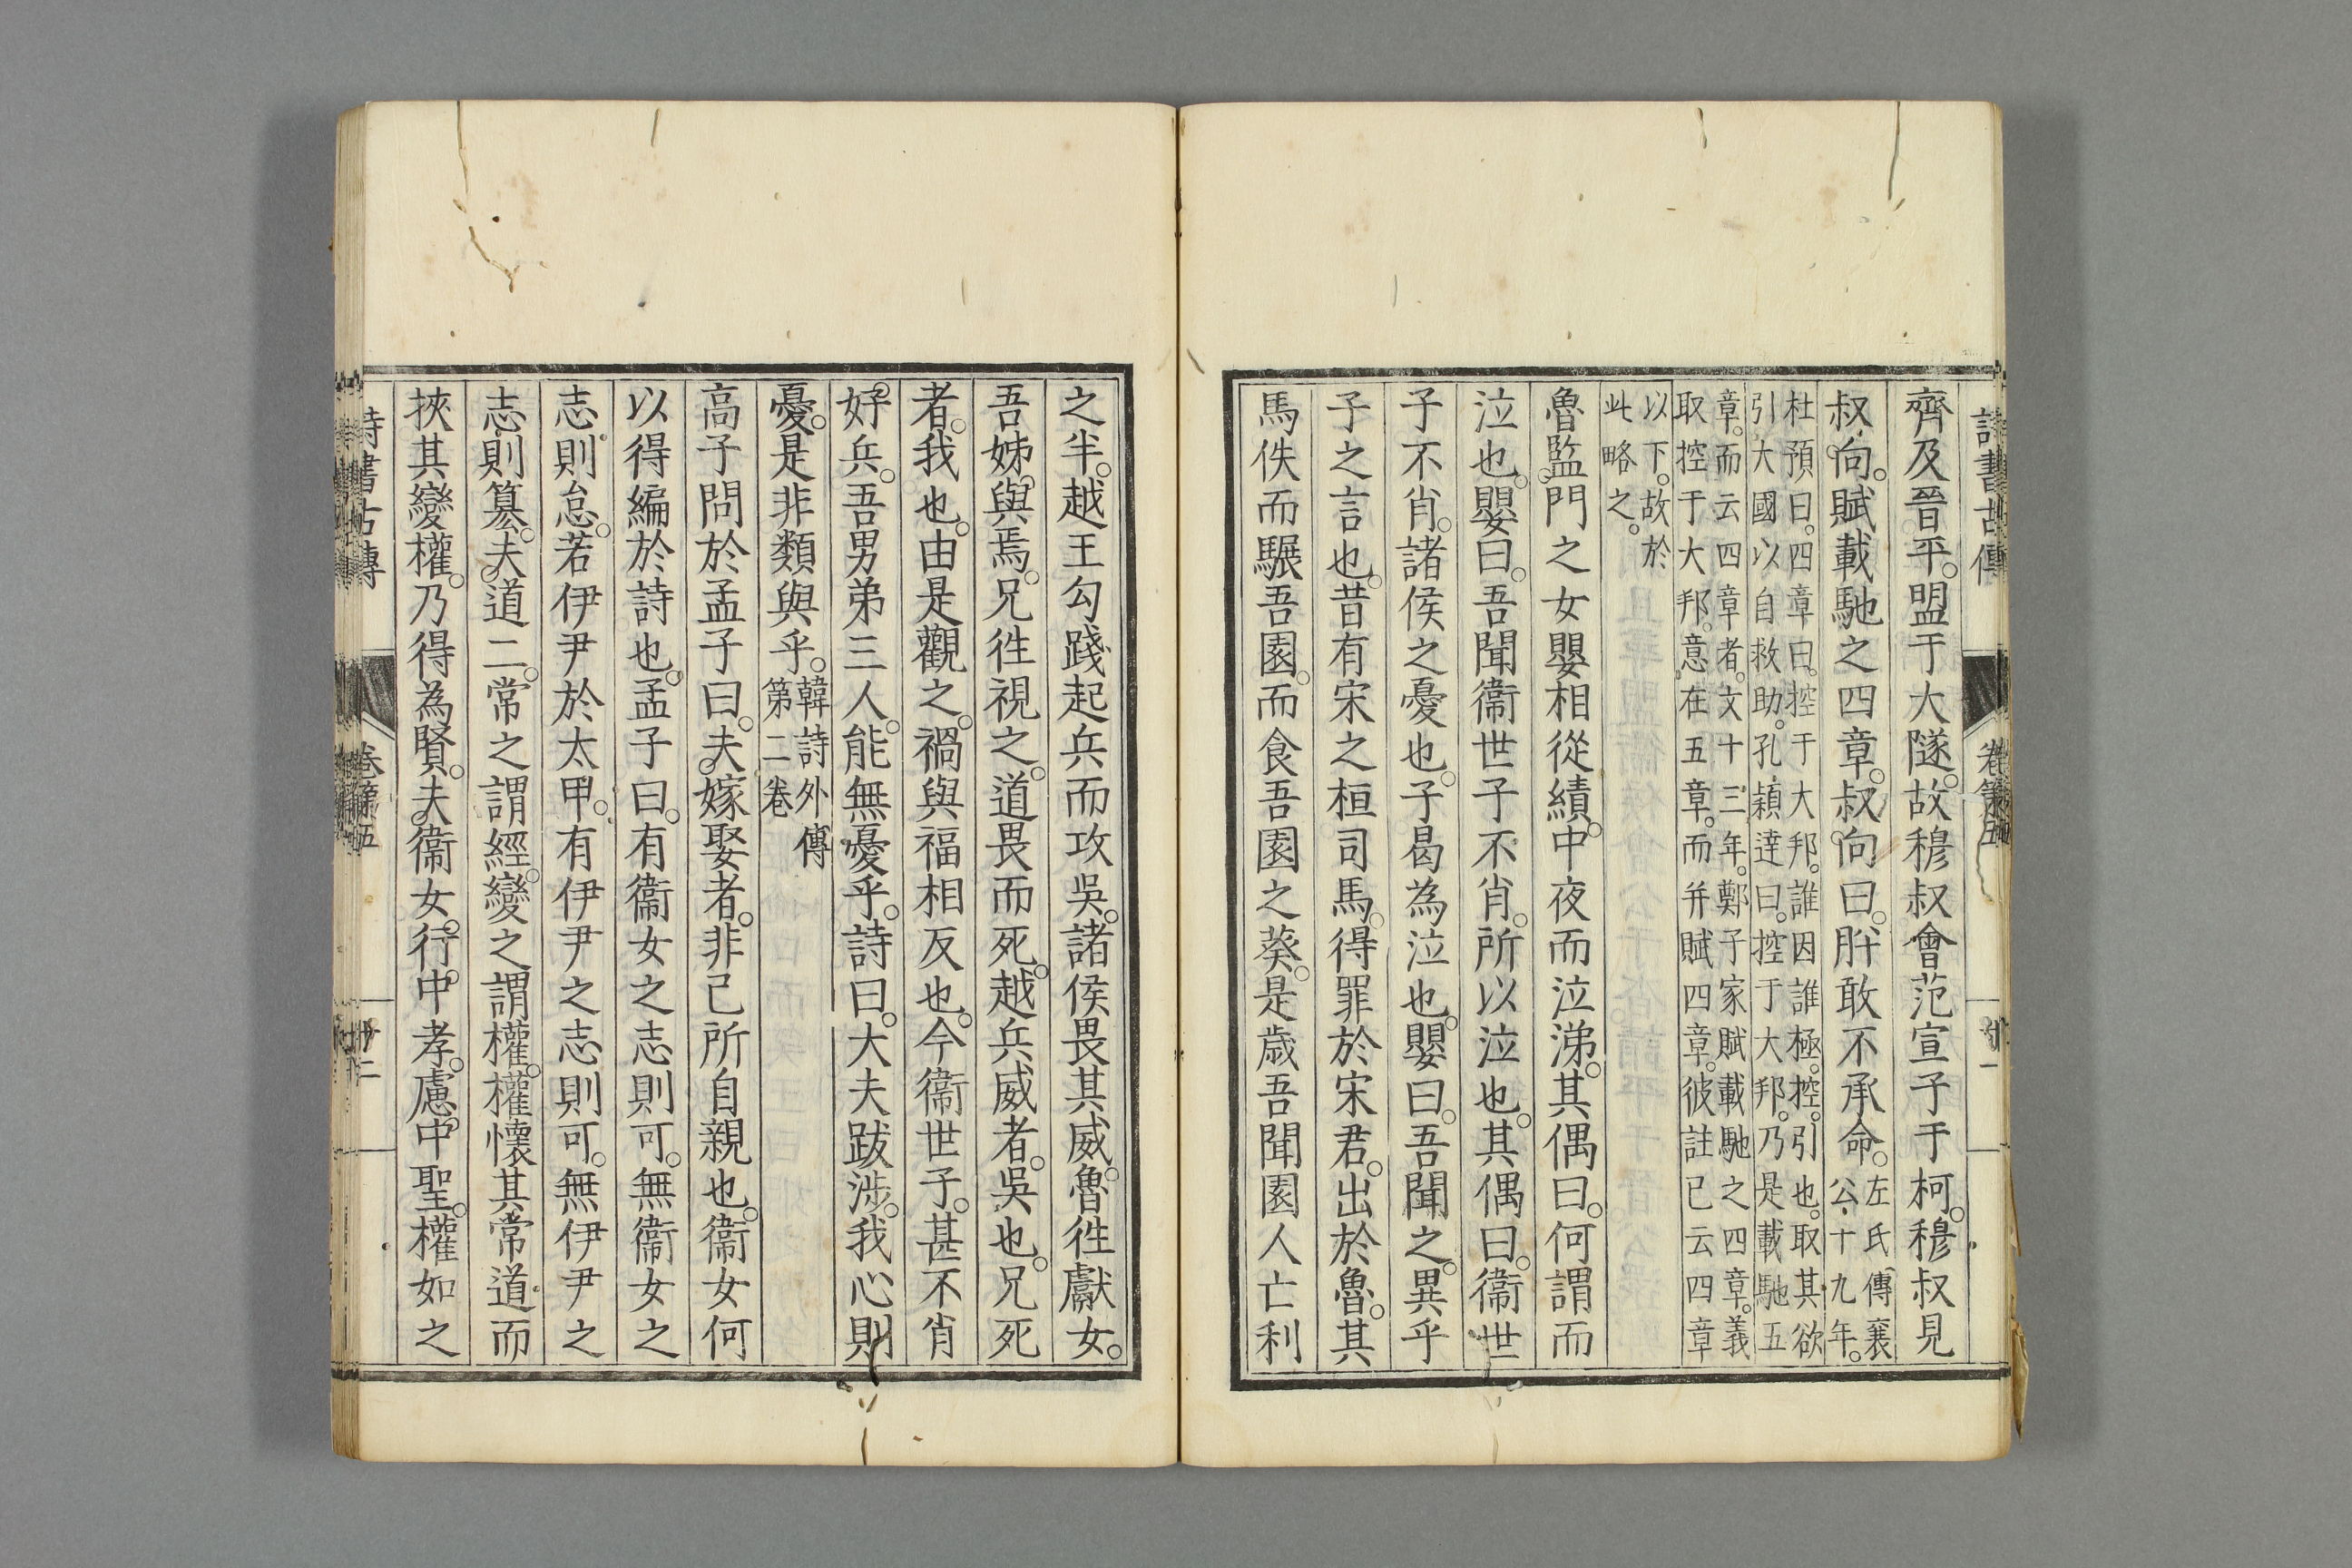 詩書古傳
卷第五
齊及晉平。盟于大隧。故穆叔會范宣子于柯。穆叔見
叔向。賦載馳之四章。叔向曰。肸敢不承命。左氏傳襄
公十九年。
杜預曰。四章曰。控于大邦。誰因誰極。控。引也。取其欲
引大國以自救助。孔穎達曰。控于大邦。乃是載馳五
章。而云四章者。文十三年。鄭子家賦載馳之四章。義
取控于大邦。意在五章。而并賦四章。彼註已云四章
以下。故於
此略之。
魯監門之女嬰相從績。中夜而泣涕。其偶曰。何謂而
泣也。嬰曰。吾聞衞世子不肖。所以泣也。其偶曰。衞世
子不肖。諸侯之憂也。子曷為泣也。嬰曰。吾聞之。異乎
子之言也。昔有宋之桓司馬。得罪於宋君。出於魯。其
馬佚而驏吾園。而食吾園之葵。是歳吾聞園人亡利
之半。越王勾踐起兵而攻吳。諸侯畏其威。魯徃獻女。
吾姊與焉。兄徃視之。道畏而死。越兵威者。吳也。兄死
者。我也。由是觀之。禍與福相反也。今衞世子。甚不肖
好兵。吾男弟三人。能無憂乎。詩曰。大夫跋涉。我心則
憂。是非類與乎。韓詩外傳
第二卷
高子問於孟子曰。夫嫁娶者。非己所自親也。衞女何
以得編於詩也。孟子曰。有衞女之志則可。無衞女之
志則怠。若伊尹於太甲。有伊尹之志則可。無伊尹之
志則篡。夫道二。常之謂經。變之謂權。權懷其常道而
挾其變權。乃得為賢。夫衞女。行中孝。慮中聖。權如之
詩書古傳
卷第五